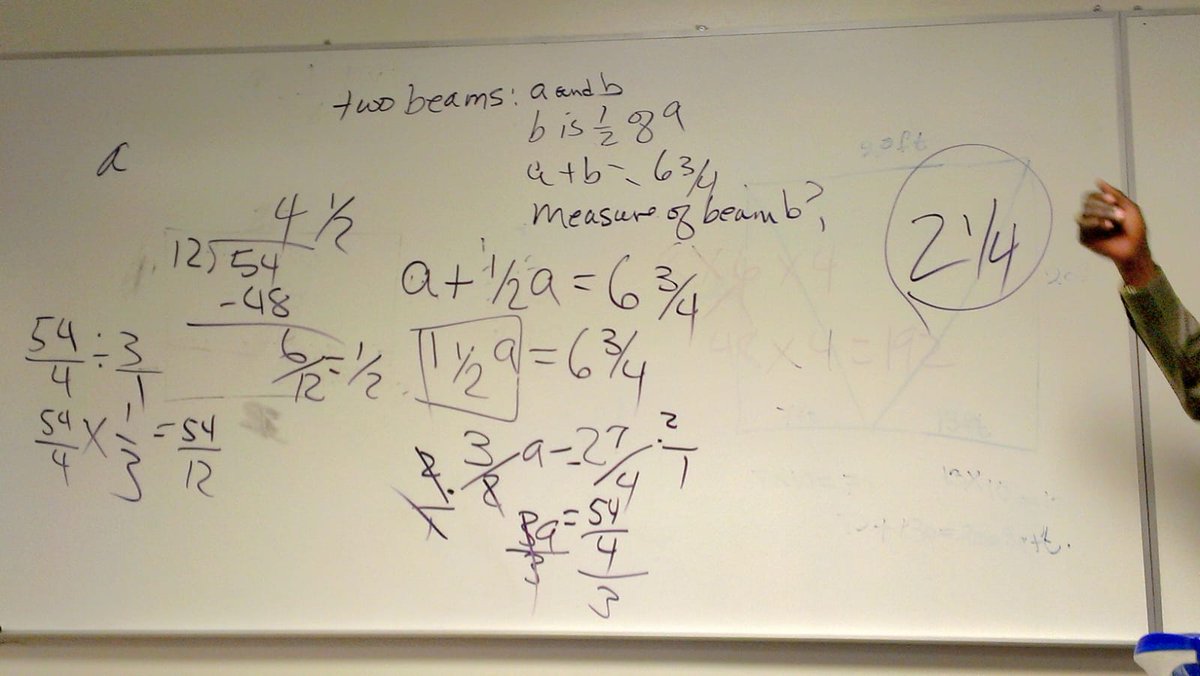 two beams: a and b
b is 1/2 of a
a + b = 6 3/4
measure of beam b?
a
4 1/2
12) 54
-48
6/12 = 1/2
54/4 ÷ 3/1
54/4 × 1/3 = 54/12
a + 1/2 a = 6 3/4
1 1/2 a = 6 3/4
2/1 · 3/2 a = 27/4 · 2/1
3a/3 = 54/4/3
2 1/4